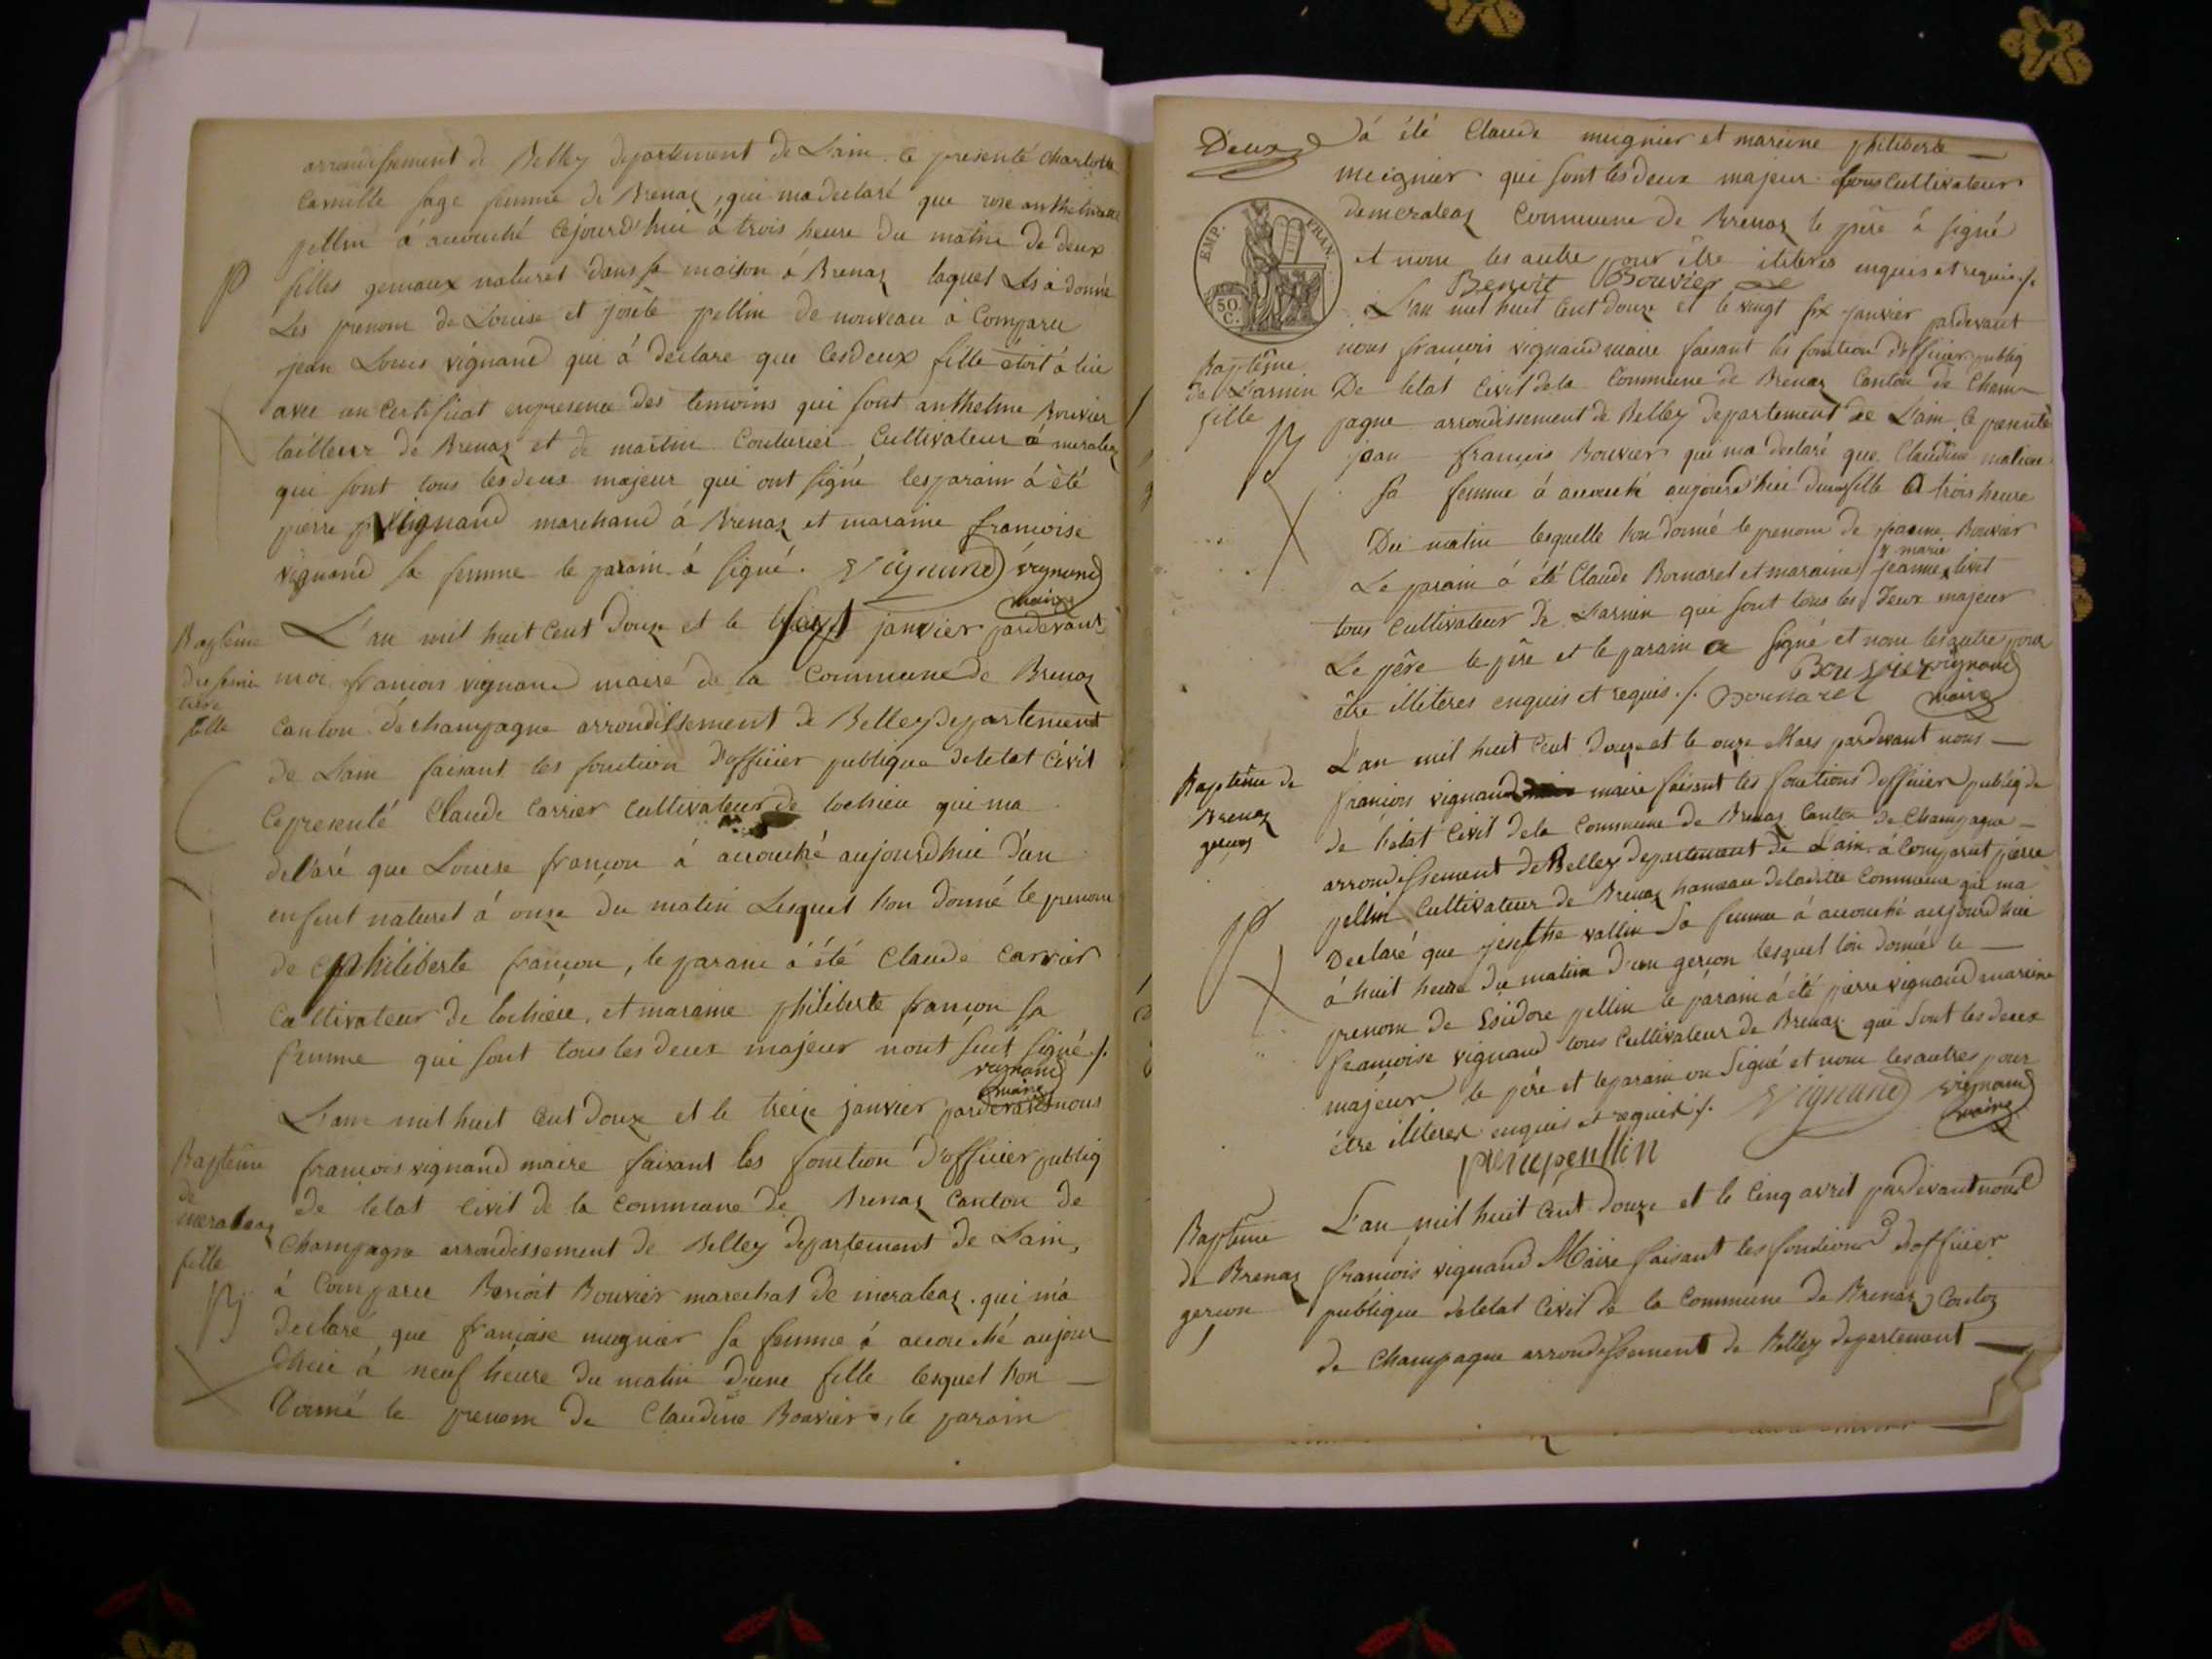 arrondissement de Belley departement de Lain. ce presenté charlotte
Camille sage femme de Brenaz, qui ma declaré que rose anthelmette
pellin á accouché cejourd'hui á trois heure du matin de deux
filles gemaux naturel dans sa maison á Brenaz laquel les á donné
Les prenom de Louise et josete pellin de nouveau á Comparu
jean Louis vignand qui á declare que les deux fille étoit á lui
avec un Certificat enpresence des temoins qui sont anthelme Bouvier
tailleur de Brenaz et de martin Couturier Cultivateur á meraleaz
qui sont tous les deux majeur qui ont signé les parain á été
pierre vignand marchand á Brenaz et maraine francoise
vignand sa femme le parain á signé. Vignand vignand
maire
Bapteme
fille
L'an mil huit Cent Douze et le janvier pardevant
moi francois vignand maire de la Commune de Brenaz
Canton de champagne arrondissement de Belley departement
de Lain faisant les fonction d'officier publique de letat Civil
Ce presenté Claude Carrier Cultivateur de lochieu qui ma
delaré que Louise francon á accouché aujourdhui d'un
enfent naturel á onze du matin Lesquel lon donné le prenom
de philiberte francon, le parain á été Claude Carrier
Cultivateur de lochieu, et maraine philiberte francon sa
femme qui sont tous les deux majeur nont sut signé ./.
vignand
maire
Bapteme
de
meraleaz
fille
pj
L'ann mil huit Cent Douze et le treize janvier pardevant nous
francois vignand maire faisant les fonction d'officier publiq
de letat Civil de la Commune de Brenaz Canton de
Champagne arrondissement de Belley departement de Lain,
á Comparu Benoit Bouvier marechal de meraleaz. qui má
declaré que francoise mugnier sa femme á accouché aujour
dhui á neuf heure du matin d'une fille lesquel lon
donné le prenom de Claudine Bouvier, le parain
Deux
á été Claude mugnier et mareine philiberte
meignier qui sont les deux majeur tous Cultivateur
de meraleaz Commune de Brenaz le père á signé
et nom les autre pour être iliteres enquis et requis ./.
Benoit Bouvier
EMP. FRAN.
50 C.
Bapteme
de Larnin
fille
pj
L'an mil huit Cent Douze et le vingt six janvier pardevant
nous francois vignand maire faisant les fonction d'officier publiq
De letat Civil dela Commune de Brenaz Canton de Cham-
pagne arrondissement de Belley departement de Lain Ce presenté
jean francois Bouvier qui ma declaré que Claudine
sa femme á accouché aujourd'hui dune fille á trois heure
Du matin lesquelle lon donné le prenom de Bouvier
Le parain á été Claude Bornarel et maraine jeanne livet
marie
tous Cultivateur de Larnin qui sont tous les Deux majeur
Le père le père et le parain a signé et nom les autre pour
être illiteres enquis et requis ./. Bournarel Bouvier vignand
maire
Bapteme de
Brenaz
gercon
L'an mil huit Cent Douze et le onze Mars pardevant nous
francois vignand maire faisant les fonctions d'officier publiq de
de létat Civil dela Commune de Brenaz Canton de Champagne
arrondissement de Belley departement de Lain á Comparut pierre
pellin Cultivateur de Brenaz hameau deladitte Commune qui ma
Declaré que josephe vallin Sa femme á accouché aujourdhui
á huit heure du matin d'un gercon lesquel lon donné le
prenom de Esidore pellin le parain á été pierre vignand mareine
francoise vignand tous Cultivateur de Brenaz que Sont les deux
majeur le père et le parain on Signé et nom les autres pour
être illiteres enquis et requis ./. Vignand vignand
maire
Bapteme
de Brenaz
gercon
L'an mil huit Cent Douze et le Cinq avril pardevant nous
francois vignand Maire faisant les fonctions d'officier
publique deletat Civil de la Commune de Brenaz Canton
de Champagne arrondissement de Belley departement